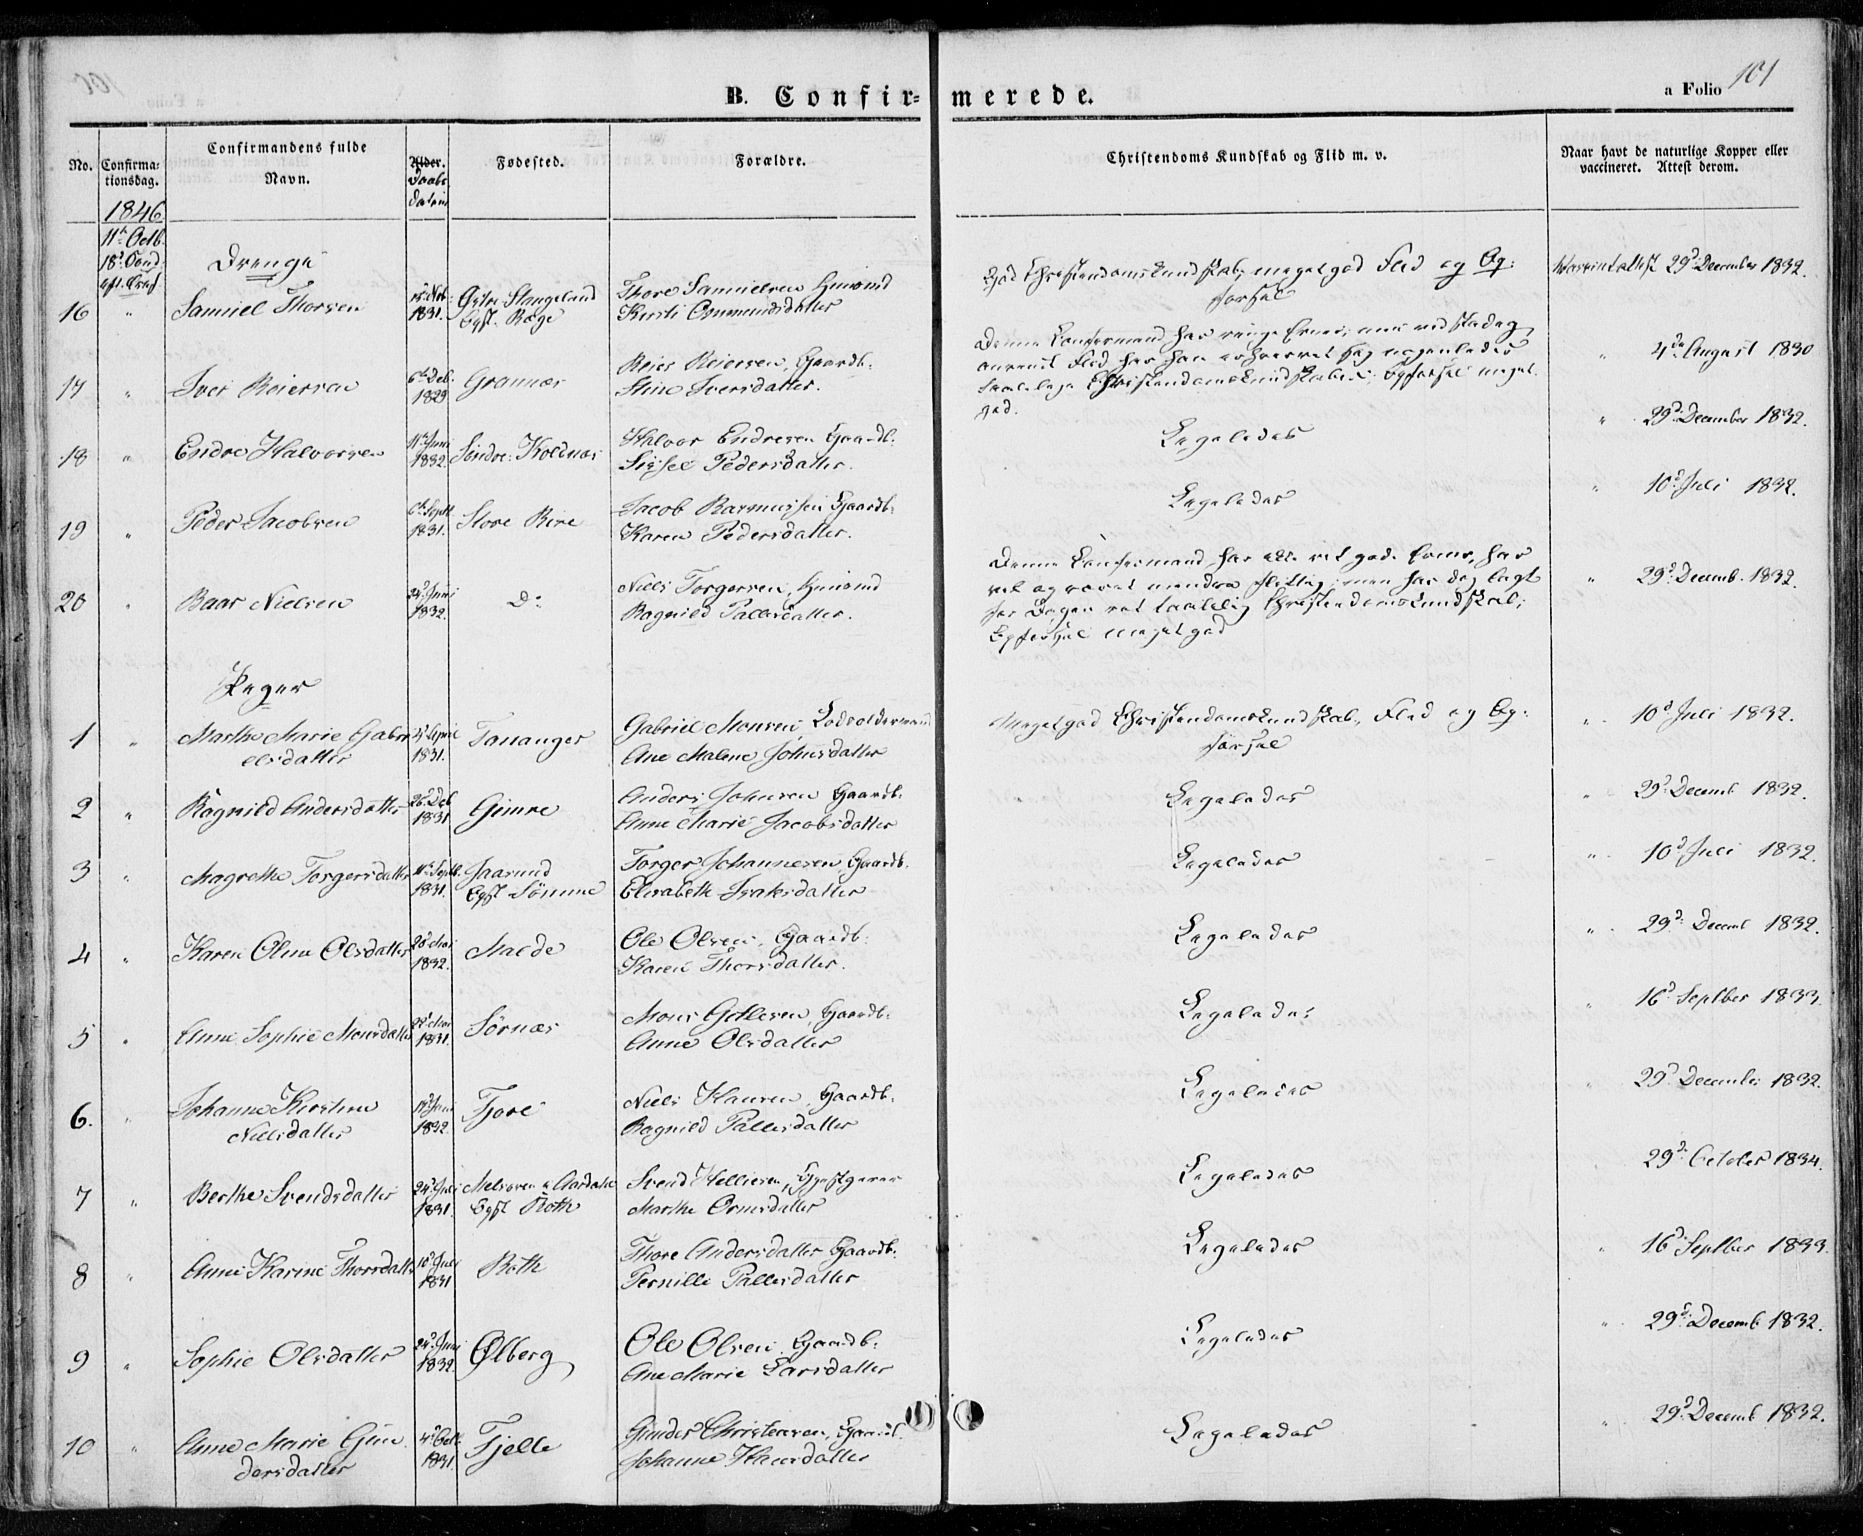 101
B. Confirmerede.
a Folio 101
No.
Confirmationsdag.
Confirmandens fulde Navn.
Alder. Daabsdatum
Fødested.
Forældre.
Christendoms Kundskab og Flid m. v.
Naar havt de naturlige Kopper eller vaccineret. Attest derom.
1846
11te Octb.
18de Sønd.
Drenge
16 " Samuel Thorsen 1831. Østre Stangeland Thore Samuelsen Huusmd God Christendomskundskab; meget god Flid og Op- Vaccinattest 29de December 1832.
Bgst. Ræge Kirsti Ommundsdatter førsel
17 " Iver Reiersen 6te Deb. 1829 Grannæs Reier Reiersen, Gaardb. Denne Confirmand har ringe Evner; men ved stadig " 4de August 1830
Stine Iversdatter. anvendt Flid har han erhvervet sig nogenledes
taalelige Christendomskundskaber; Opførsel meget
god.
18 " Endre Halvorsen 11te Juni 1832 Søndre Koldnæs Halvor Endresen Gaardb. Ligeledes " 29de December 1832.
Sissel Pedersdatter.
19 " Peder Jacobsen 6te Sept. 1831. Store Rise Jacob Rasmussen Gaardb. Ligeledes " 10de Juli 1832.
Karen Pedersdatter.
20 " Baar Nielsen 24de Juni 1832. Do Niels Torgersen, Huusmd Denne Confirmand har ikke ret gode Evner, har " 29de Decemb. 1832.
Ragnild Pallesdatter. vel og været mindre flittig; men har dog lagt
for Dagen ret taalelig Christendomskundskab;
Opførsel meget god
Piger
1 " Marthe Marie Gabrielsdatter 1831. Tananger Gabriel Monsen, Lodsoldermand Meget god Christendomskundskab, Flid og Op- " 10de Juli 1832.
Ane Malene Johnsdatter førsel
2 " Ragnild Andersdatter 26de Deb 1831 Gimre Anders Johnsen Gaardb. Ligeledes " 29de Decemb 1832.
Anne Marie Jacobsdatter
3 " Magrethe Torgersdatter 11te Septb. 1831. Jaasund Torger Johannesen, Gaardb. Ligeledes " 10de Juli 1832.
Bgst Sömme Elisabeth Isaksdatter
4 " Karen Oline Olsdatter 28de Mai 1832. Melde Ole Olsen, Gaardb. Ligeledes " 29de Decemb 1832.
Karen Thorsdatter.
5 " Anne Sophie Monsdatter 1831. Sörnæs Mons Gitlesen, Gaardb. Ligeledes " 16de Septber 1833.
Anne Olsdatter
6. " Johanne Kirstine Nielsdatter 1832. Tjore Niels Hansen, Gaardb. Ligeledes " 29de December 1832.
Ragnild Pallesdatter
7 " Berthe Svendsdatter 24de Juli 1831. Melsoren i Aardahl Svend Helliesen, Gjestgiver Ligeledes " 29de October 1834.
Bgst Roth Marthe Ormsdatter
8 " Anne Karine Thorsdatter 10de Juli 1831 Roth Thore Andersdatter Gaardb. Ligeledes " 16de Septber 1833.
Pernille Pallesdatter
9 " Sophie Olsdatter 24de Juni 1832. Ølberg Ole Olsen, Gaardb. Ligeledes " 29de Decemb 1832.
Ane Marie Larsdatter
10 " Anne Marie Gundersdatter 4de Octb. 1831. Tjelle Gunder Christensen, Gaardb. Ligeledes " 29de Decemb 1832.
Johanne Hansdatter